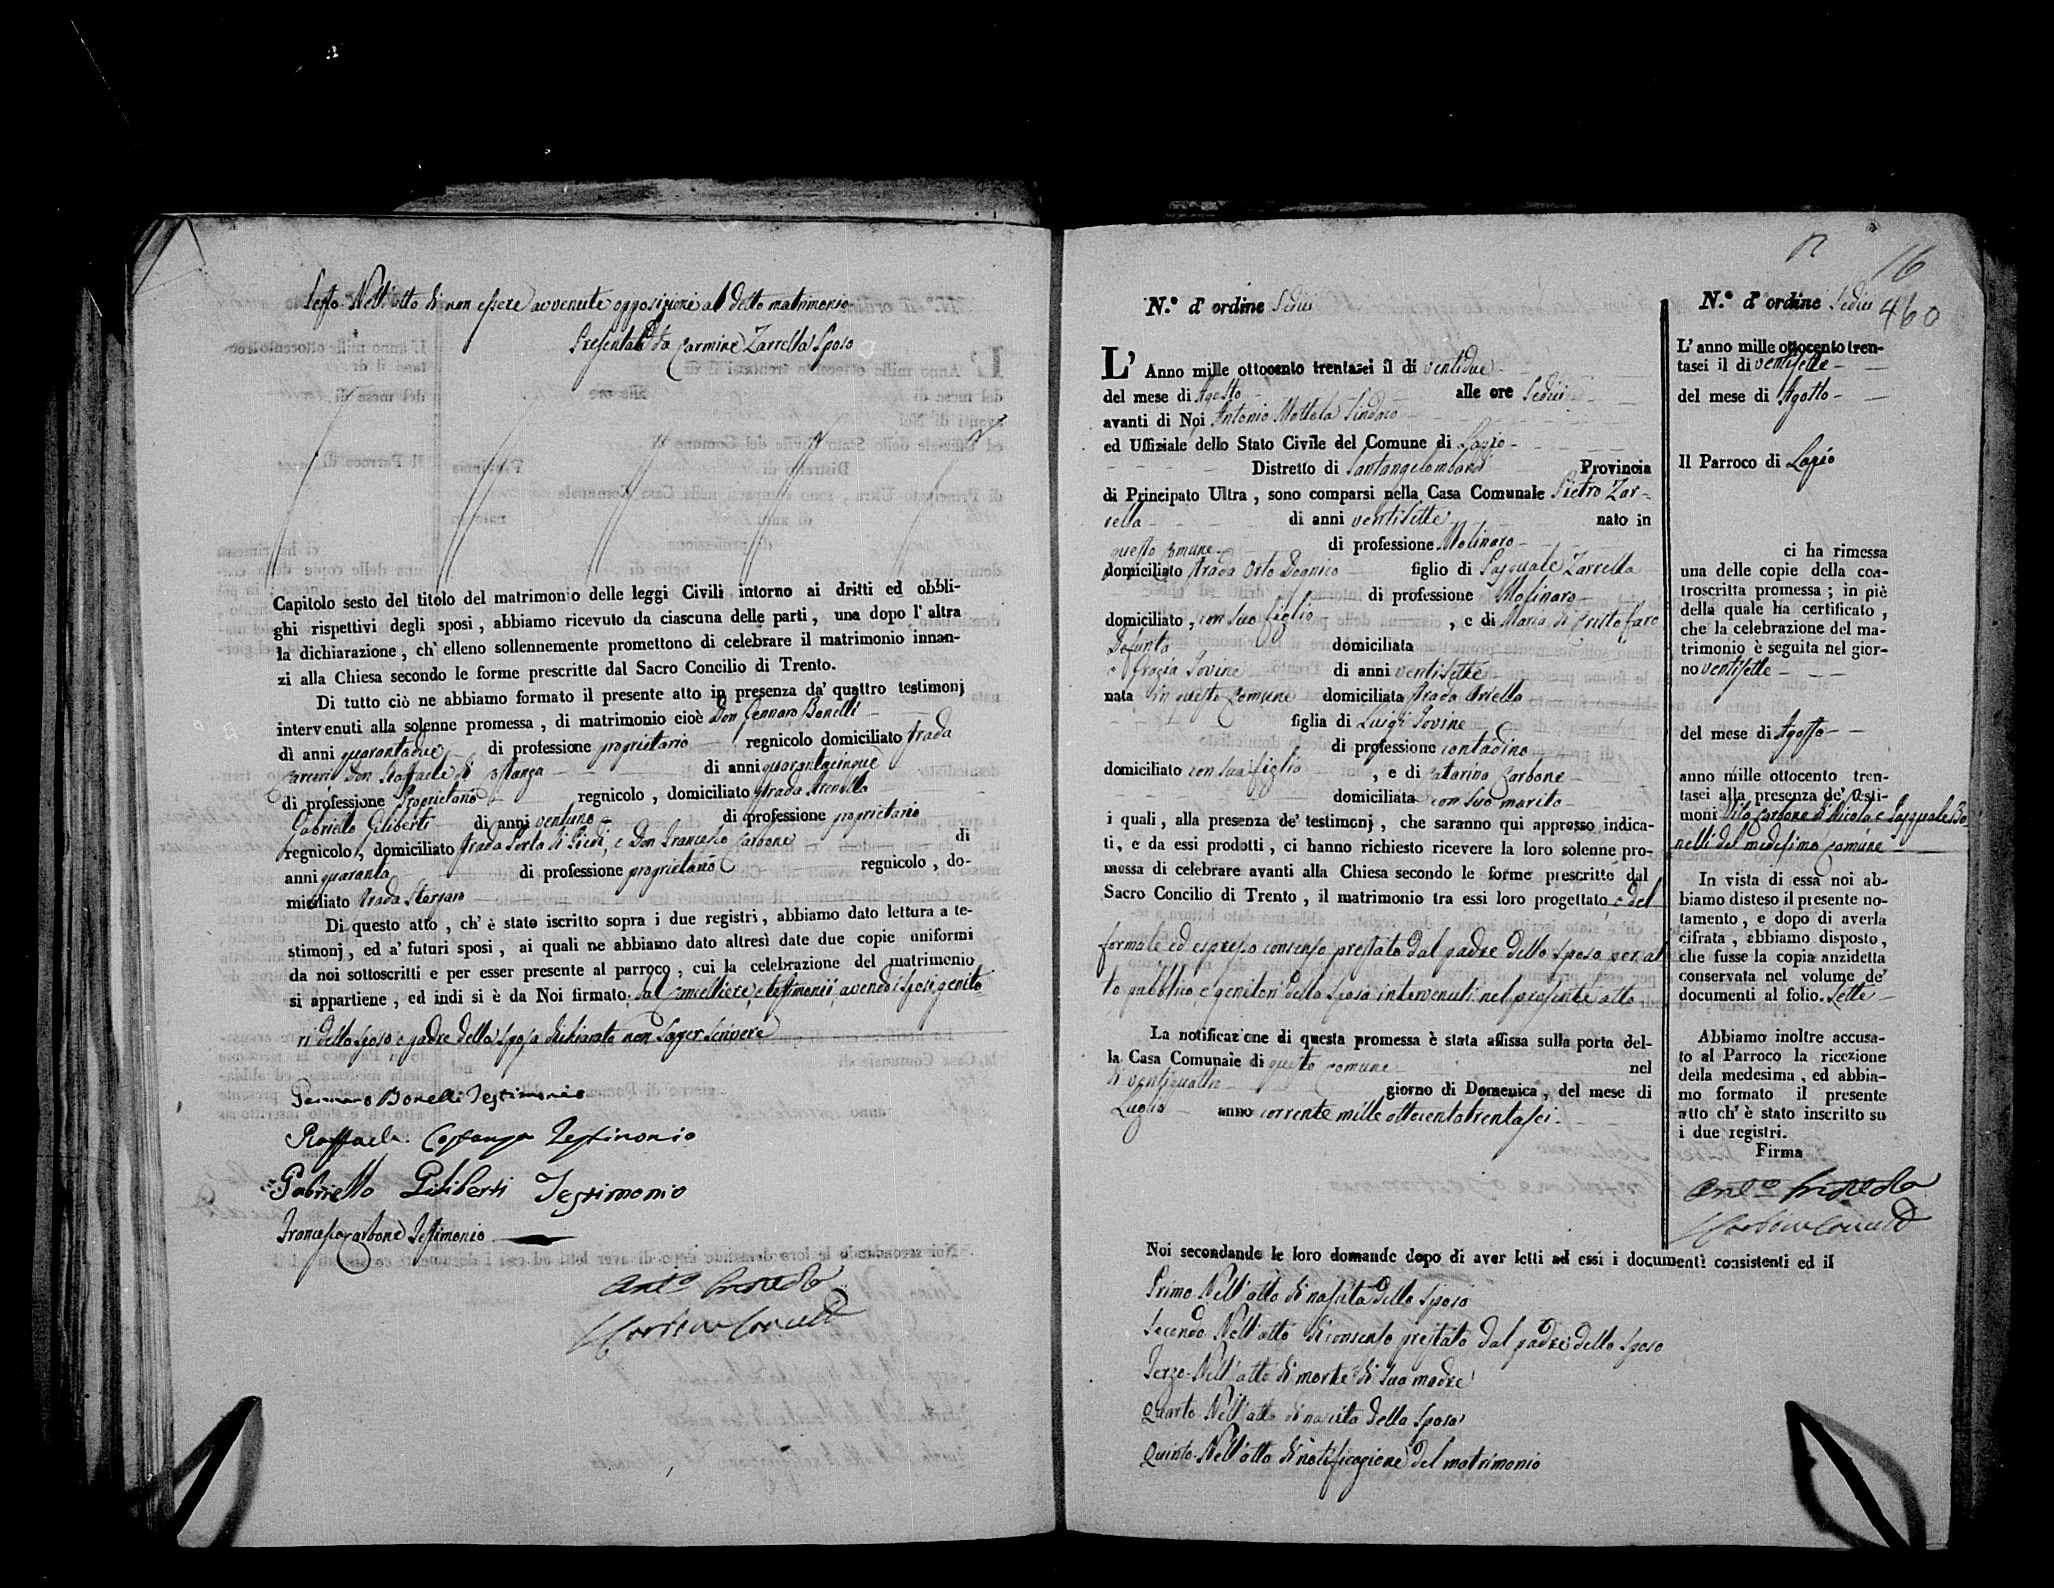 Sesto Nell'atto di non essere avvenute opposizioni al detto matrimonio
Presentati da Carmine Zarrella Sposo
Capitolo sesto del titolo del matrimonio delle leggi Civili intorno ai dritti ed obbli-
ghi rispettivi degli sposi, abbiamo ricevuto da ciascuna delle parti, una dopo l'altra
la dichiarazione, ch'elleno sollennemente promettono di celebrare il matrimonio innan-
zi alla Chiesa secondo le forme prescritte dal Sacro Concilio di Trento.
Di tutto ciò ne abbiamo formato il presente atto in presenza da' quattro testimonj
intervenuti alla solenne promessa, di matrimonio cioè Don Gennaro Bonelli
di anni quarantadue di professione proprietario regnicolo domiciliato Strada
Carceri Don Raffaele di Costanza di anni quarantacinque
di professione Proprietario regnicolo, domiciliato Strada Arenella
Gabriello Giliberti di anni ventuno di professione proprietario
regnicolo, domiciliato Strada Porta di Piedi, e Don Francesco Carbone di
anni quaranta di professione proprietario regnicolo, do-
miciliato Strada
Di questo atto, ch'è stato iscritto sopra i due registri, abbiamo dato lettura a te-
stimonj, ed a' futuri sposi, ai quali ne abbiamo dato altresì date due copie uniformi
da noi sottoscritti e per esser presente al parroco, cui la celebrazione del matrimonio
si appartiene, ed indi si è da Noi firmato dal Cancelliere, e testimonii avendo i sposi genito
ri dello sposo e padre della sposa dichiarato non saper scrivere
Gennaro Bonelli Testimonio
Raffaele Costanza Testimonio
Gabriello Giliberti Testimonio
Francesco Carbone Testimonio
16
460
N.° d'ordine Sedici
L'Anno mille ottocento trentasei il di ventidue
del mese di Agosto alle ore Sedici
avanti di Noi Antonio Mottola Sindaco
ed Uffiziale dello Stato Civile del Comune di Lapio
Distretto di Santangelombardi Provincia
di Principato Ultra, sono comparsi nella Casa Comunale Pietro Zar-
rella di anni ventisette nato in
questo Comune di professione Molinaro
domiciliato Strada Orto Doanico figlio di Pasquale Zarrella
di professione Molinaro
domiciliato, con suo figlio, e di Maria di Cristofaro
Defunta domiciliata
e Grazia Iovine di anni ventisette
nata in questo Comune domiciliata Strada Ariella
figlia di Luigi Iovine
di professione contadino
domiciliato con sua figlia, e di Catarina Carbone
domiciliata con suo marito
i quali, alla presenza de' testimonj, che saranno qui appresso indica-
ti, e da essi prodotti, ci hanno richiesto ricevere la loro solenne pro-
messa di celebrare avanti alla Chiesa secondo le forme prescritte dal
Sacro Concilio di Trento, il matrimonio tra essi loro progettato, e del
formale ed espresso consenso prestato dal padre dello sposo per at
to pubblico, e genitori della sposa intervenuti nel presente atto
La notificazione di questa promessa è stata affissa sulla porta del-
la Casa Comunale di questo Comune nel
dì ventiquattro giorno di Domenica, del mese di
Luglio anno corrente mille ottocento trentasei
N.° d'ordine Sedici
L'anno mille ottocento tren-
tasei il di ventisette
del mese di Agosto
Il Parroco di Lapio
ci ha rimessa
una delle copie della con-
troscritta promessa; in piè
della quale ha certificato,
che la celebrazione del ma-
trimonio è seguita nel gior-
no ventisette
del mese di Agosto
anno mille ottocento tren-
tasei alla presenza de' testi-
moni Vito Carbone di Nicola e Pasquale Bo-
nelli del medesimo Comune
In vista di essa noi ab-
biamo disteso il presente no-
tamento, e dopo di averla
cifrata, abbiamo disposto,
che fusse la copia anzidetta
conservata nel volume de'
documenti al folio. Sette
Abbiamo inoltre accusa-
to al Parroco la ricezione
della medesima, ed abbia-
mo formato il presente
atto ch'è stato inscritto su
i due registri.
Firma
Noi secondando le loro domande dopo di aver letti ad essi i documenti consistenti ed il
Primo Nell'atto di nascita dello Sposo
Secondo Nell'atto di consenso prestato dal padre dello Sposo
Terzo Nell'atto di morte di sua madre
Quarto Nell'atto di nascita della Sposa
Quinto Nell'atto di notificazione del matrimonio